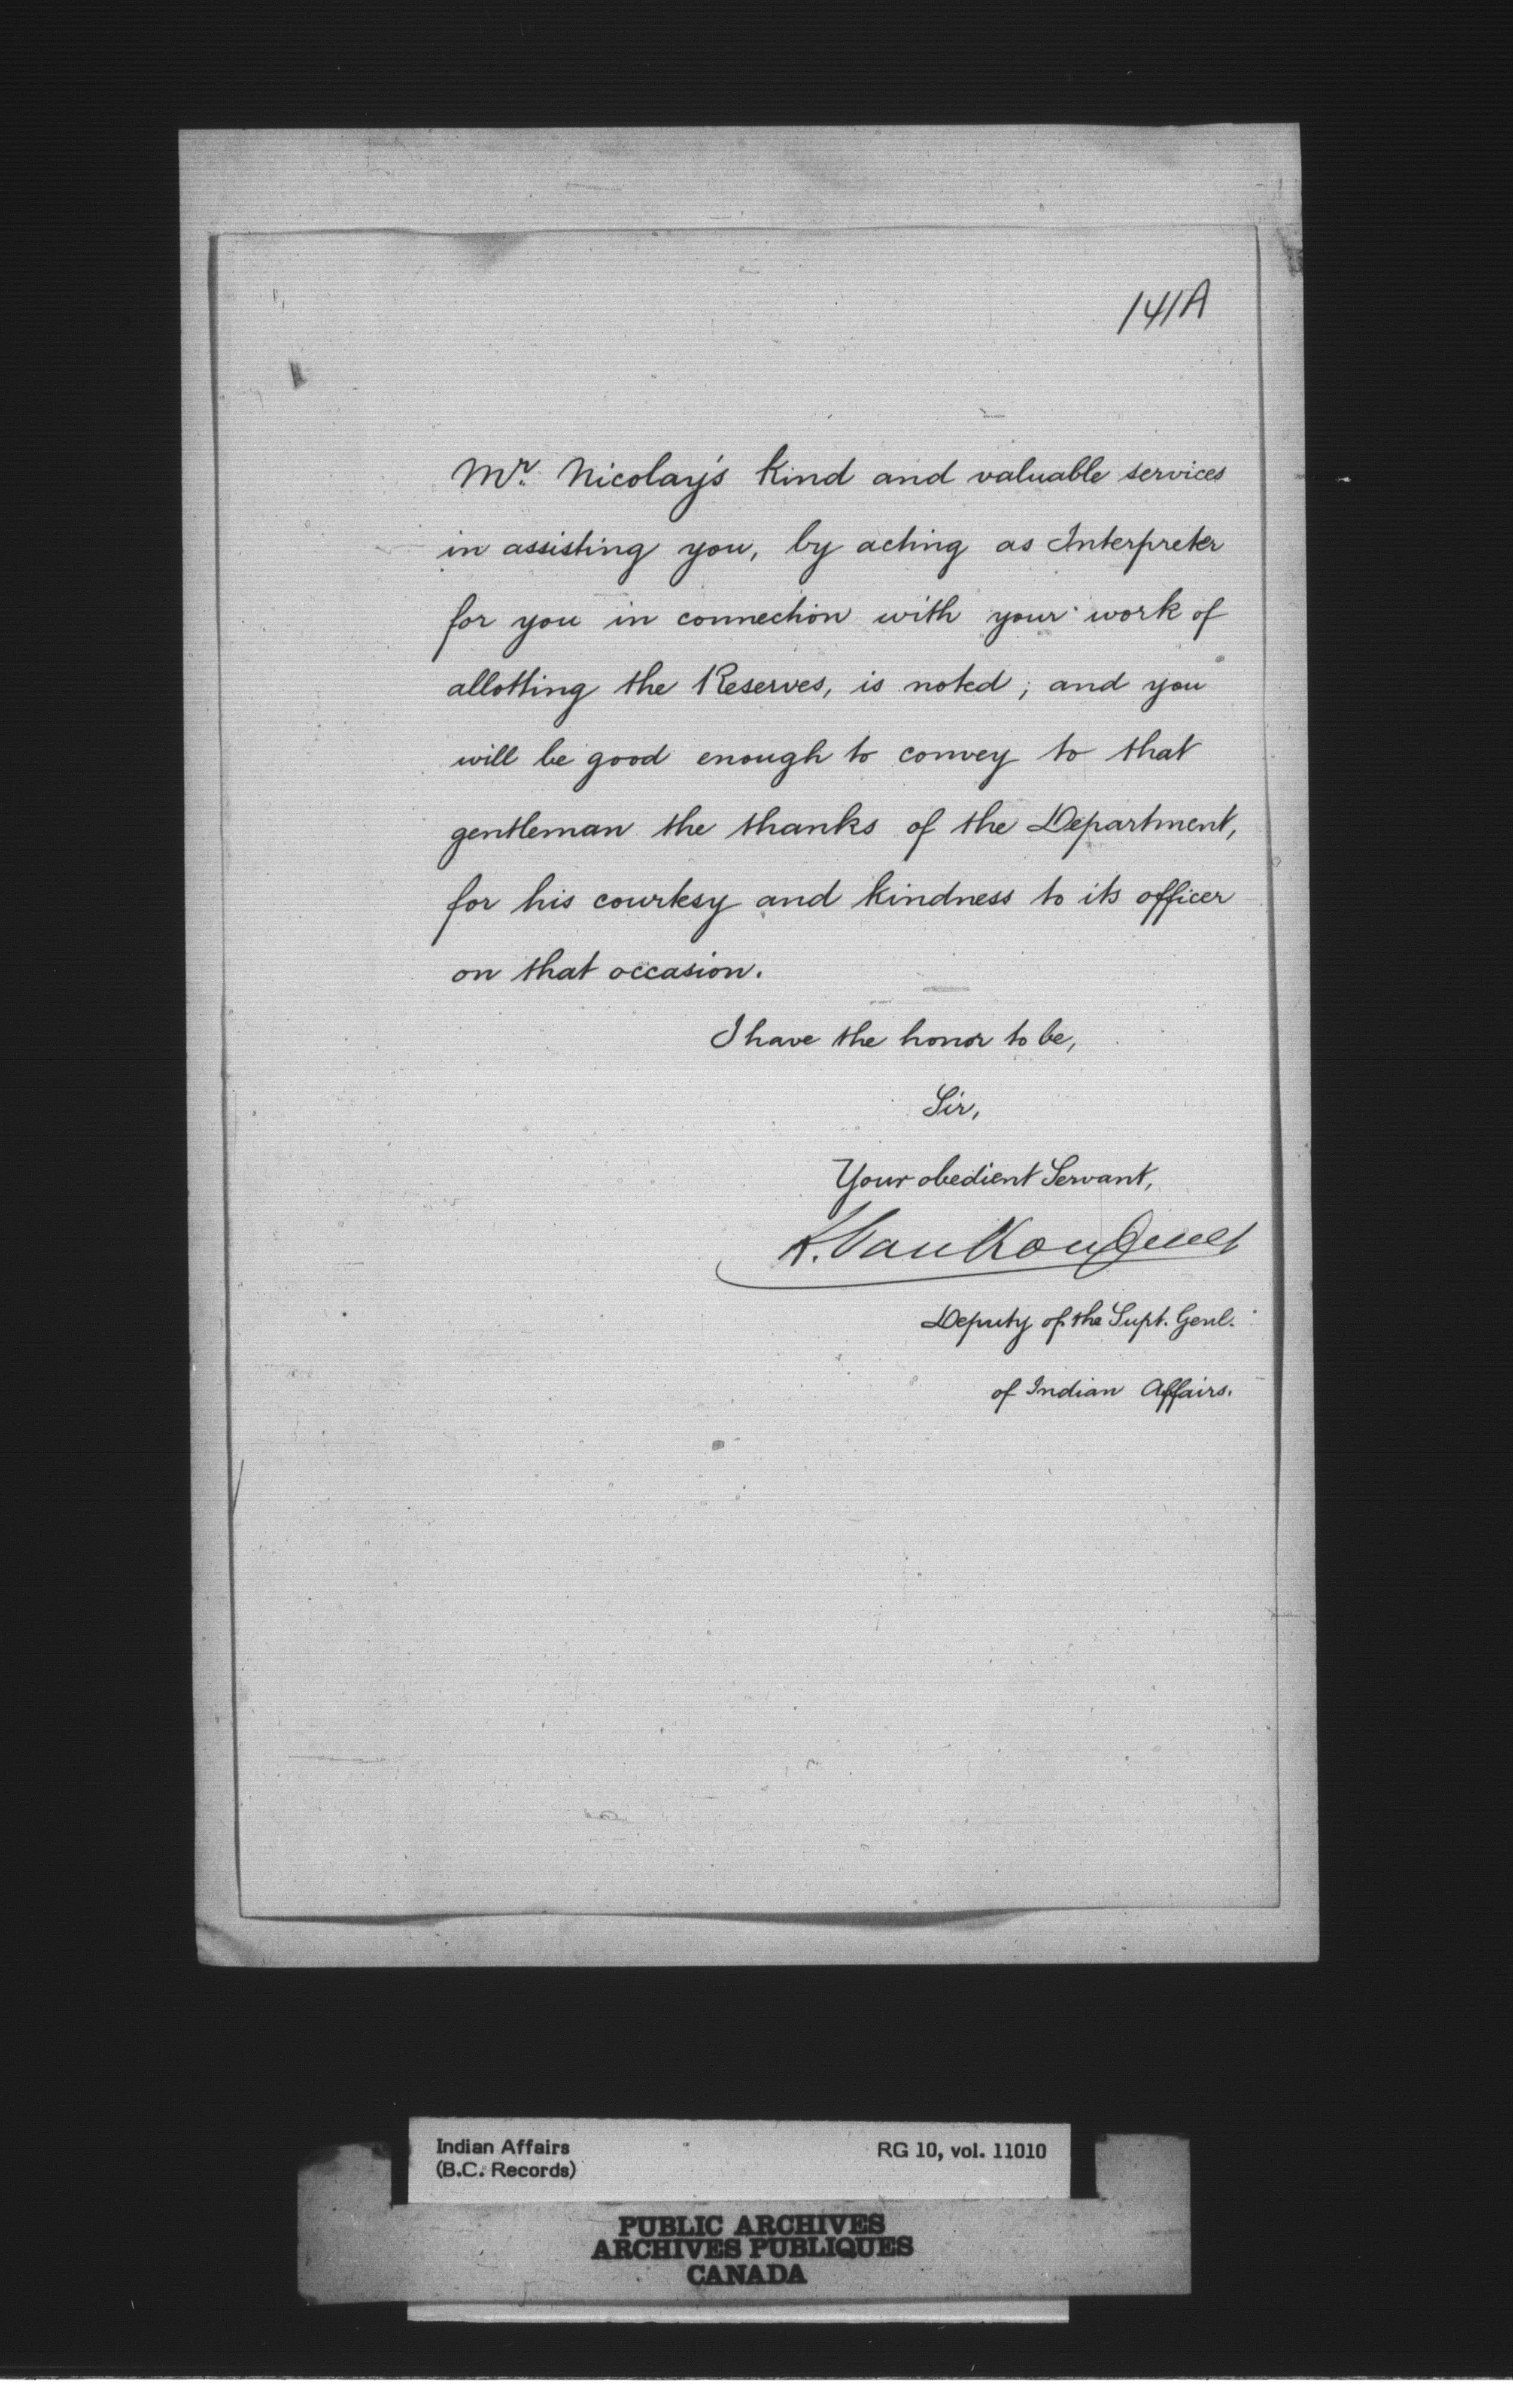 141A
Mr. Nicolay's kind and valuable services
in assisting you, by acting as Interpreter
for you in connection with your work of
allotting the Reserves, is noted; and you
will be good enough to convey to that
gentleman the thanks of the Department,
for his courtesy and kindness to its officer
on that occasion.
I have the honor to be,
Sir,
Your obedient Servant,
L. VanKoughnet
Deputy of the Supt. Genl.
of Indian Affairs.
Indian Affairs
(B.C. Records)
RG 10, vol. 11010
PUBLIC ARCHIVES
ARCHIVES PUBLIQUES
CANADA